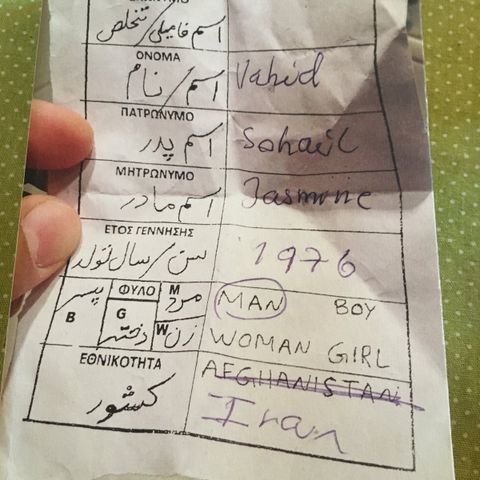 اسم فامیلی/تخلص
ΟΝΟΜΑ
اسم/نام
Vahid
ΠΑΤΡΩΝΥΜΟ
اسم پدر
Sohail
ΜΗΤΡΩΝΥΜΟ
اسم مادر
Jasmine
ΕΤΟΣ ΓΕΝΝΗΣΗΣ
سن/سال تولد
1976
پسر B
ΦΥΛΟ
M مرد
MAN BOY
G دختر
W زن
WOMAN GIRL
ΕΘΝΙΚΟΤΗΤΑ
کشور
AFGHANISTAN
Iran